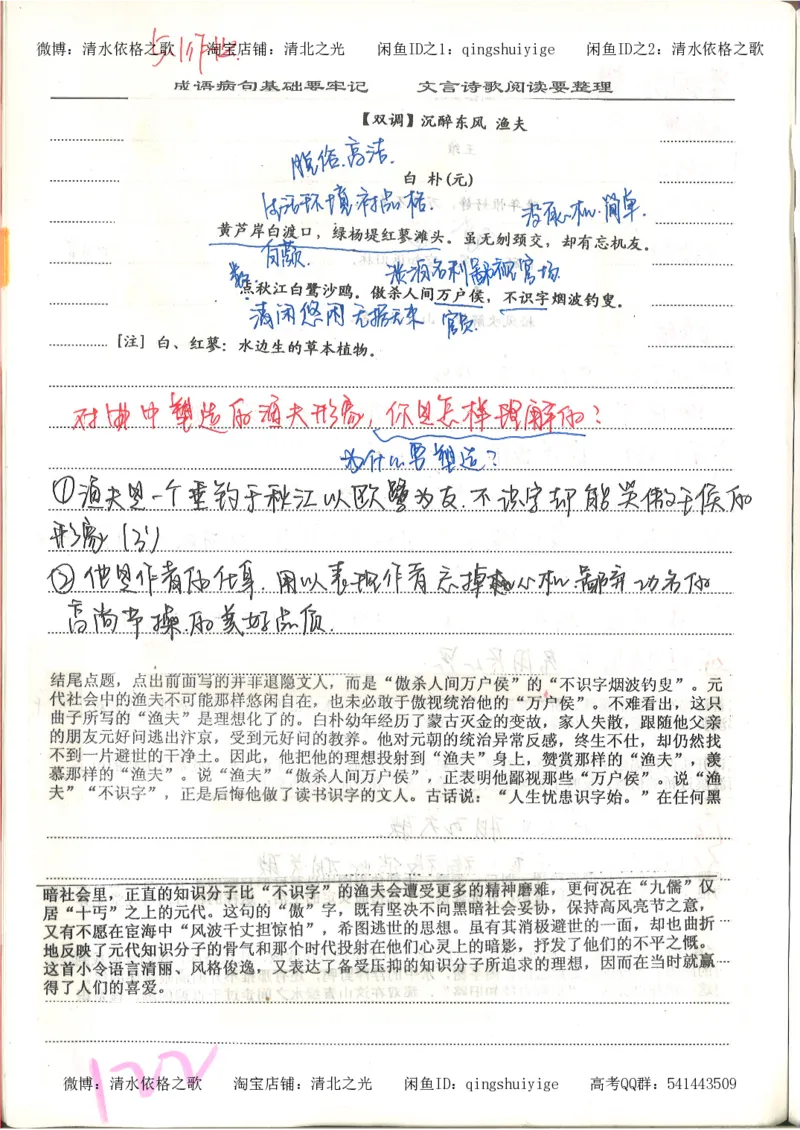 微博：清水依格之歌 淘宝店铺：清北之光 闲鱼ID之1：qingshuiyige 闲鱼ID之2：清水依格之歌
成语病句基础要牢记 文言诗歌阅读要整理
【双调】沉醉东风 渔夫
脱俗.高洁.
白 朴(元)
生活环境衬品格.
没有心机.简单.
黄芦岸白渡口，绿杨堤红蓼滩头。虽无刎颈交，却有忘机友。
淡泊名利鄙视官场
点秋江白鹭沙鸥。傲杀人间万户侯，不识字烟波钓叟。
清闲悠闲 无拘无束 官员
[注] 白、红蓼：水边生的草本植物。
对曲中塑造的渔夫形象，你是怎样理解的？
为什么要塑造？
①渔夫是一个垂钓于秋江以欧鹭为友.不识字却能笑傲王侯的
形象
②他是作者的化身.用以表现作者忘掉心机.鄙弃功名的
高尚节操.的美好品质.
结尾点题，点出前面写的并非退隐文人，而是“傲杀人间万户侯”的“不识字烟波钓叟”。元
代社会中的渔夫不可能那样悠闲自在，也未必敢于傲视统治他的“万户侯”。不难看出，这只
曲子所写的“渔夫”是理想化了的。白朴幼年经历了蒙古灭金的变故，家人失散，跟随他父亲
的朋友元好问逃出汴京，受到元好问的教养。他对元朝的统治异常反感，终生不仕，却仍然找
不到一片避世的干净土。因此，他把他的理想投射到“渔夫”身上，赞赏那样的“渔夫”，羡
慕那样的“渔夫”。说“渔夫”“傲杀人间万户侯”，正表明他鄙视那些“万户侯”。说“渔
夫”“不识字”，正是后悔他做了读书识字的文人。古话说：“人生忧患识字始。”在任何黑
暗社会里，正直的知识分子比“不识字”的渔夫会遭受更多的精神磨难，更何况在“九儒”仅
居“十丐”之上的元代。这句的“傲”字，既有坚决不向黑暗社会妥协，保持高风亮节之意，
又有不愿在宦海中“风波千丈担惊怕”，希图逃世的思想。虽有其消极避世的一面，却也曲折
地反映了元代知识分子的骨气和那个时代投射在他们心灵上的暗影，抒发了他们的不平之慨。
这首小令语言清丽、风格俊逸，又表达了备受压抑的知识分子所追求的理想，因而在当时就赢
得了人们的喜爱。
122
微博：清水依格之歌 淘宝店铺：清北之光 闲鱼ID：qingshuiyige 高考QQ群：541443509